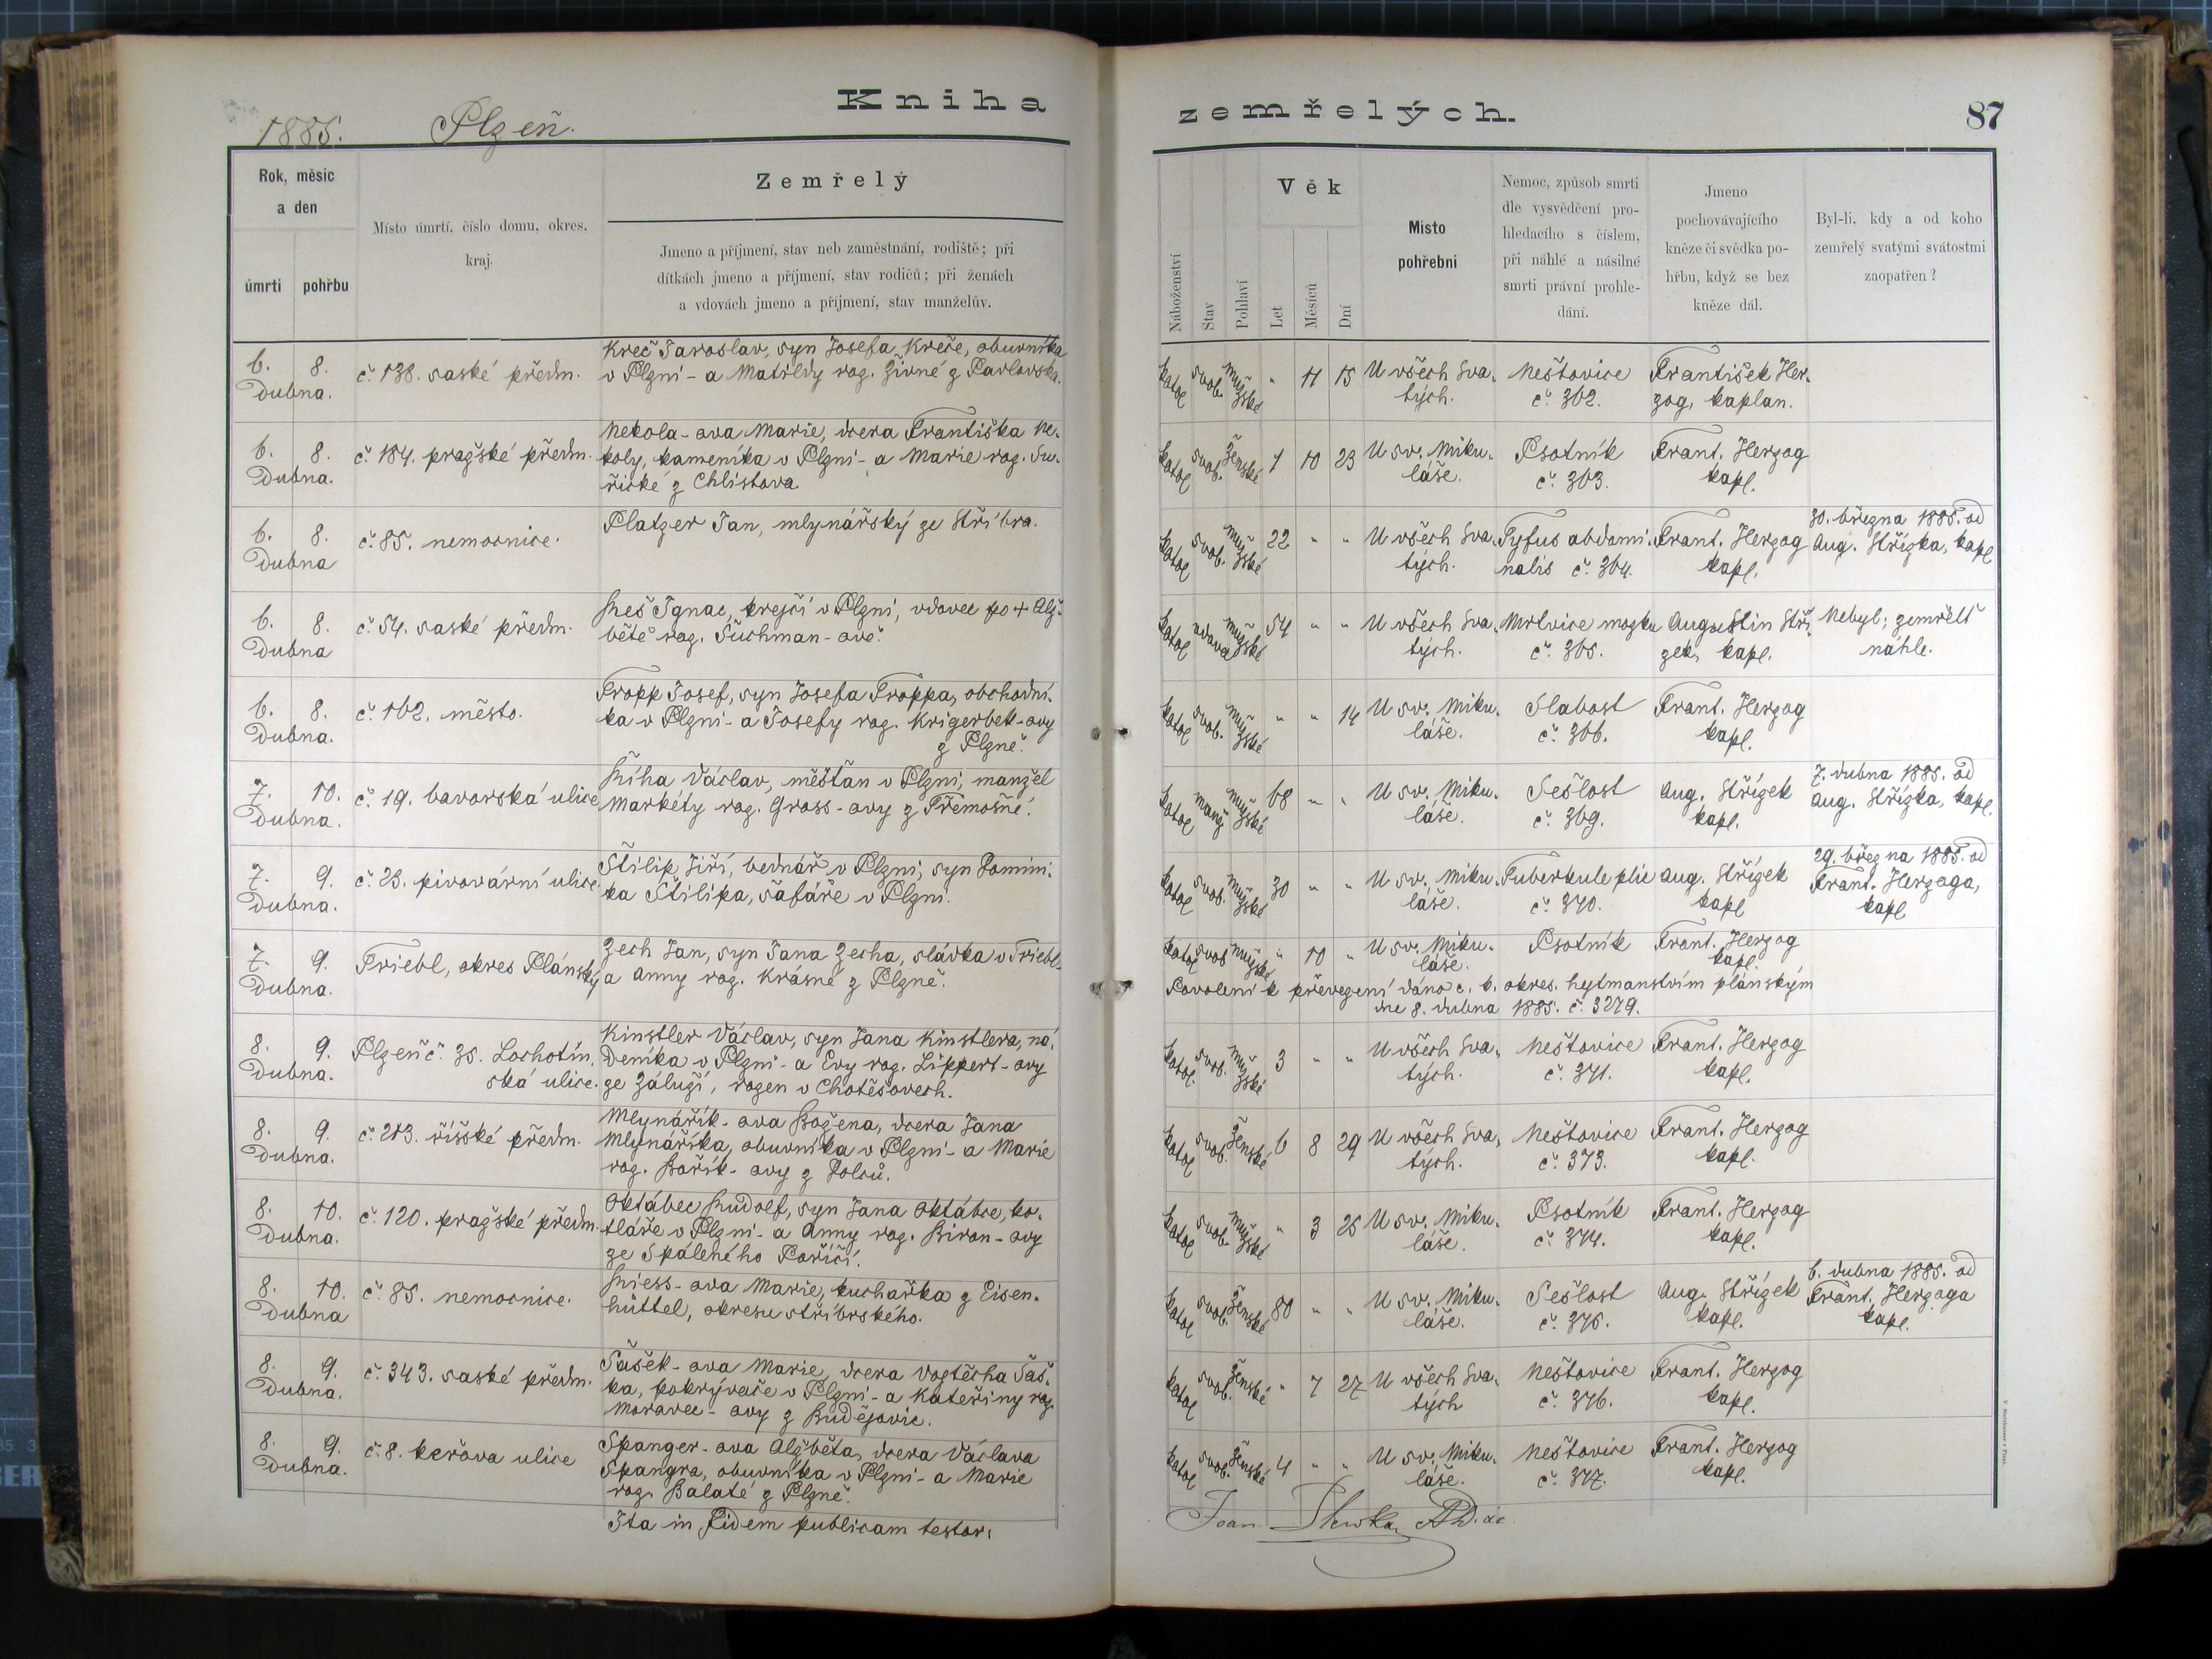 Kniha
zemřelých.
87
1885. Plzeň.
Rok, měsíc
a den
úmrtí
pohřbu
Místo úmrtí, číslo domu, okres,
kraj.
Zemřelý
Jmeno a příjmení, stav neb zaměstnání, rodiště; při
dítkách jmeno a příjmení, stav rodičů; při ženách
a vdovách jmeno a příjmení, stav manželův.
Náboženství
Stav
Pohlaví
Věk
Let
Měsíců
Dní
Místo
pohřební
Nemoc, způsob smrti
dle vysvědčení pro-
hledacího s číslem,
při náhlé a násilné
smrti právní prohle-
dání.
Jmeno
pochovávajícího
kněze či svědka po-
hřbu, když se bez
kněze dál.
Byl-li, kdy a od koho
zemřelý svatými svátostmi
zaopatřen?
6. 8.
Dubna.
č. 138. saské předm.
Kreč Jaroslav, syn Josefa Kreče, obuvníka
v Plzni - a Matildy roz. Živné z Pavlovska.
katol svob. mužské " 11 15
U všech Sva-
tých.
Neštovice
č. 362.
František Her-
zog, kaplan.
6. 8.
Dubna.
č. 184. pražské předm.
Nekola-ova Marie, dcera Františka Ne-
koly, kameníka v Plzni - a Marie roz. Su-
řické z Chlistova
katol svob. Ženské 1 10 23
U sv. Miku-
láše.
Psotník
č. 363.
Frant. Herzog
kapl.
6. 8.
Dubna
č. 85. nemocnice.
Platzer Jan, mlynářský ze Stříbra.
katol svob. mužské 22 " "
U všech Sva-
tých.
Tyfus abdomi-
nalis č. 364.
Frant. Herzog
kapl.
30. března 1885. od
Aug. Střízka, kapl
6. 8.
Dubna
č. 54. saské předm.
Reš Ignac, krejčí v Plzni, vdovec po + Alž-
bětě roz. Šuchman-ově.
katol vdovec mužské 54 " "
U všech Sva-
tých.
Mrtvice mozku
č. 365.
Augustin Stří-
zek, kapl.
Nebyl; zemřelť
náhle.
6. 8.
Dubna.
č. 162. město.
Tropp Josef, syn Josefa Troppa, obchodní-
ka v Plzni - a Josefy roz. Krigerbek-ovy
z Plzně.
katol svob. mužské " " 14
U sv. Miku-
láše.
Slabost
č. 366.
Frant. Herzog
kapl.
7. 10.
Dubna.
č. 19. bavorská ulice
Říha Václav, měšťan v Plzni, manžel
Markéty roz. Gross-ovy z Třemošné.
katol manž mužské 68 " "
U sv. Miku-
láše.
Sešlost
č. 369.
Aug. Střízek
kapl.
7. dubna 1885. od
Aug. Střízka, kapl.
7. 9.
Dubna.
č. 23. pivovární ulice.
Štilip Jiří, bednář v Plzni, syn Domini-
ka Štilipa, šafáře v Plzni.
katol svob. mužské 30 " "
U sv. Miku-
láše.
Tuberkule plic
č. 370.
Aug. Střízek
kapl
29. března 1885. od
Frant. Herzoga,
kapl
7. 9.
Dubna.
Triebl, okres Plánský
Zech Jan, syn Jana Zecha, sládka v Triebl-
a Anny roz. Krásné z Plzně.
katol svob mužské " 10 "
U sv. Miku-
láše.
Psotník
Frant. Herzog
kapl.
Povolení k převezení dáno c. k. okres. hejtmanstvím plánským
dne 8. dubna 1885. č. 3279.
8. 9.
Dubna.
Plzeň č. 35. Lochotín-
ská ulice.
Kinstler Václav, syn Jana Kinstlera, ná-
deníka v Plzni - a Evy roz. Lippert-ovy
ze Záluží, rozen v Chotěšovech.
katol. svob. mužské 3 " "
U všech Sva-
tých.
Neštovice
č. 371.
Frant. Herzog
kapl.
8. 9.
Dubna.
č. 213. říšské předm.
Mlynářík-ova Božena, dcera Jana
Mlynáříka, obuvníka v Plzni - a Marie
roz. Bařík-ovy z Dolců.
katol svob. Ženské 6 8 29
U všech Sva-
tých.
Neštovice
č. 373.
Frant. Herzog
kapl.
8. 10.
Dubna.
č. 120. pražské předm.
Oktábec Rudolf, syn Jana Oktábce, ko-
tláře v Plzni - a Anny roz. Biron-ovy
ze Spáleného Poříčí.
katol svob. mužské " 3 25
U sv. Miku-
láše.
Psotník
č. 374.
Frant. Herzog
kapl.
8. 10.
Dubna
č. 85. nemocnice.
Riess-ova Marie, kuchařka z Eisen-
hüttel, okresu stříbrského.
katol svob. Ženské 80 " "
U sv. Miku-
láše.
Sešlost
č. 375.
Aug. Střízek
kapl.
6. dubna 1885. od
Frant. Herzoga
kapl.
8. 9.
Dubna.
č. 343. saské předm.
Šašek-ova Marie, dcera Vojtěcha Šaš-
ka, pokrývače v Plzni - a Kateřiny roz.
Moravec-ovy z Budějovic.
katol svob. Ženské " 7 27
U všech Sva-
tých
Neštovice
č. 376.
Frant. Herzog
kapl.
8. 9.
Dubna.
č. 8. keřova ulice
Spanger-ova Alžběta, dcera Václava
Spangra, obuvníka v Plzni - a Marie
roz. Balaté z Plzně.
katol svob. Ženské 4 " "
U sv. Miku-
láše.
Neštovice
č. 377.
Frant. Herzog
kapl.
Ita in Fidem publicam testor.
Joan